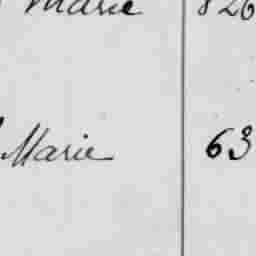 Marie 826
Marie 63